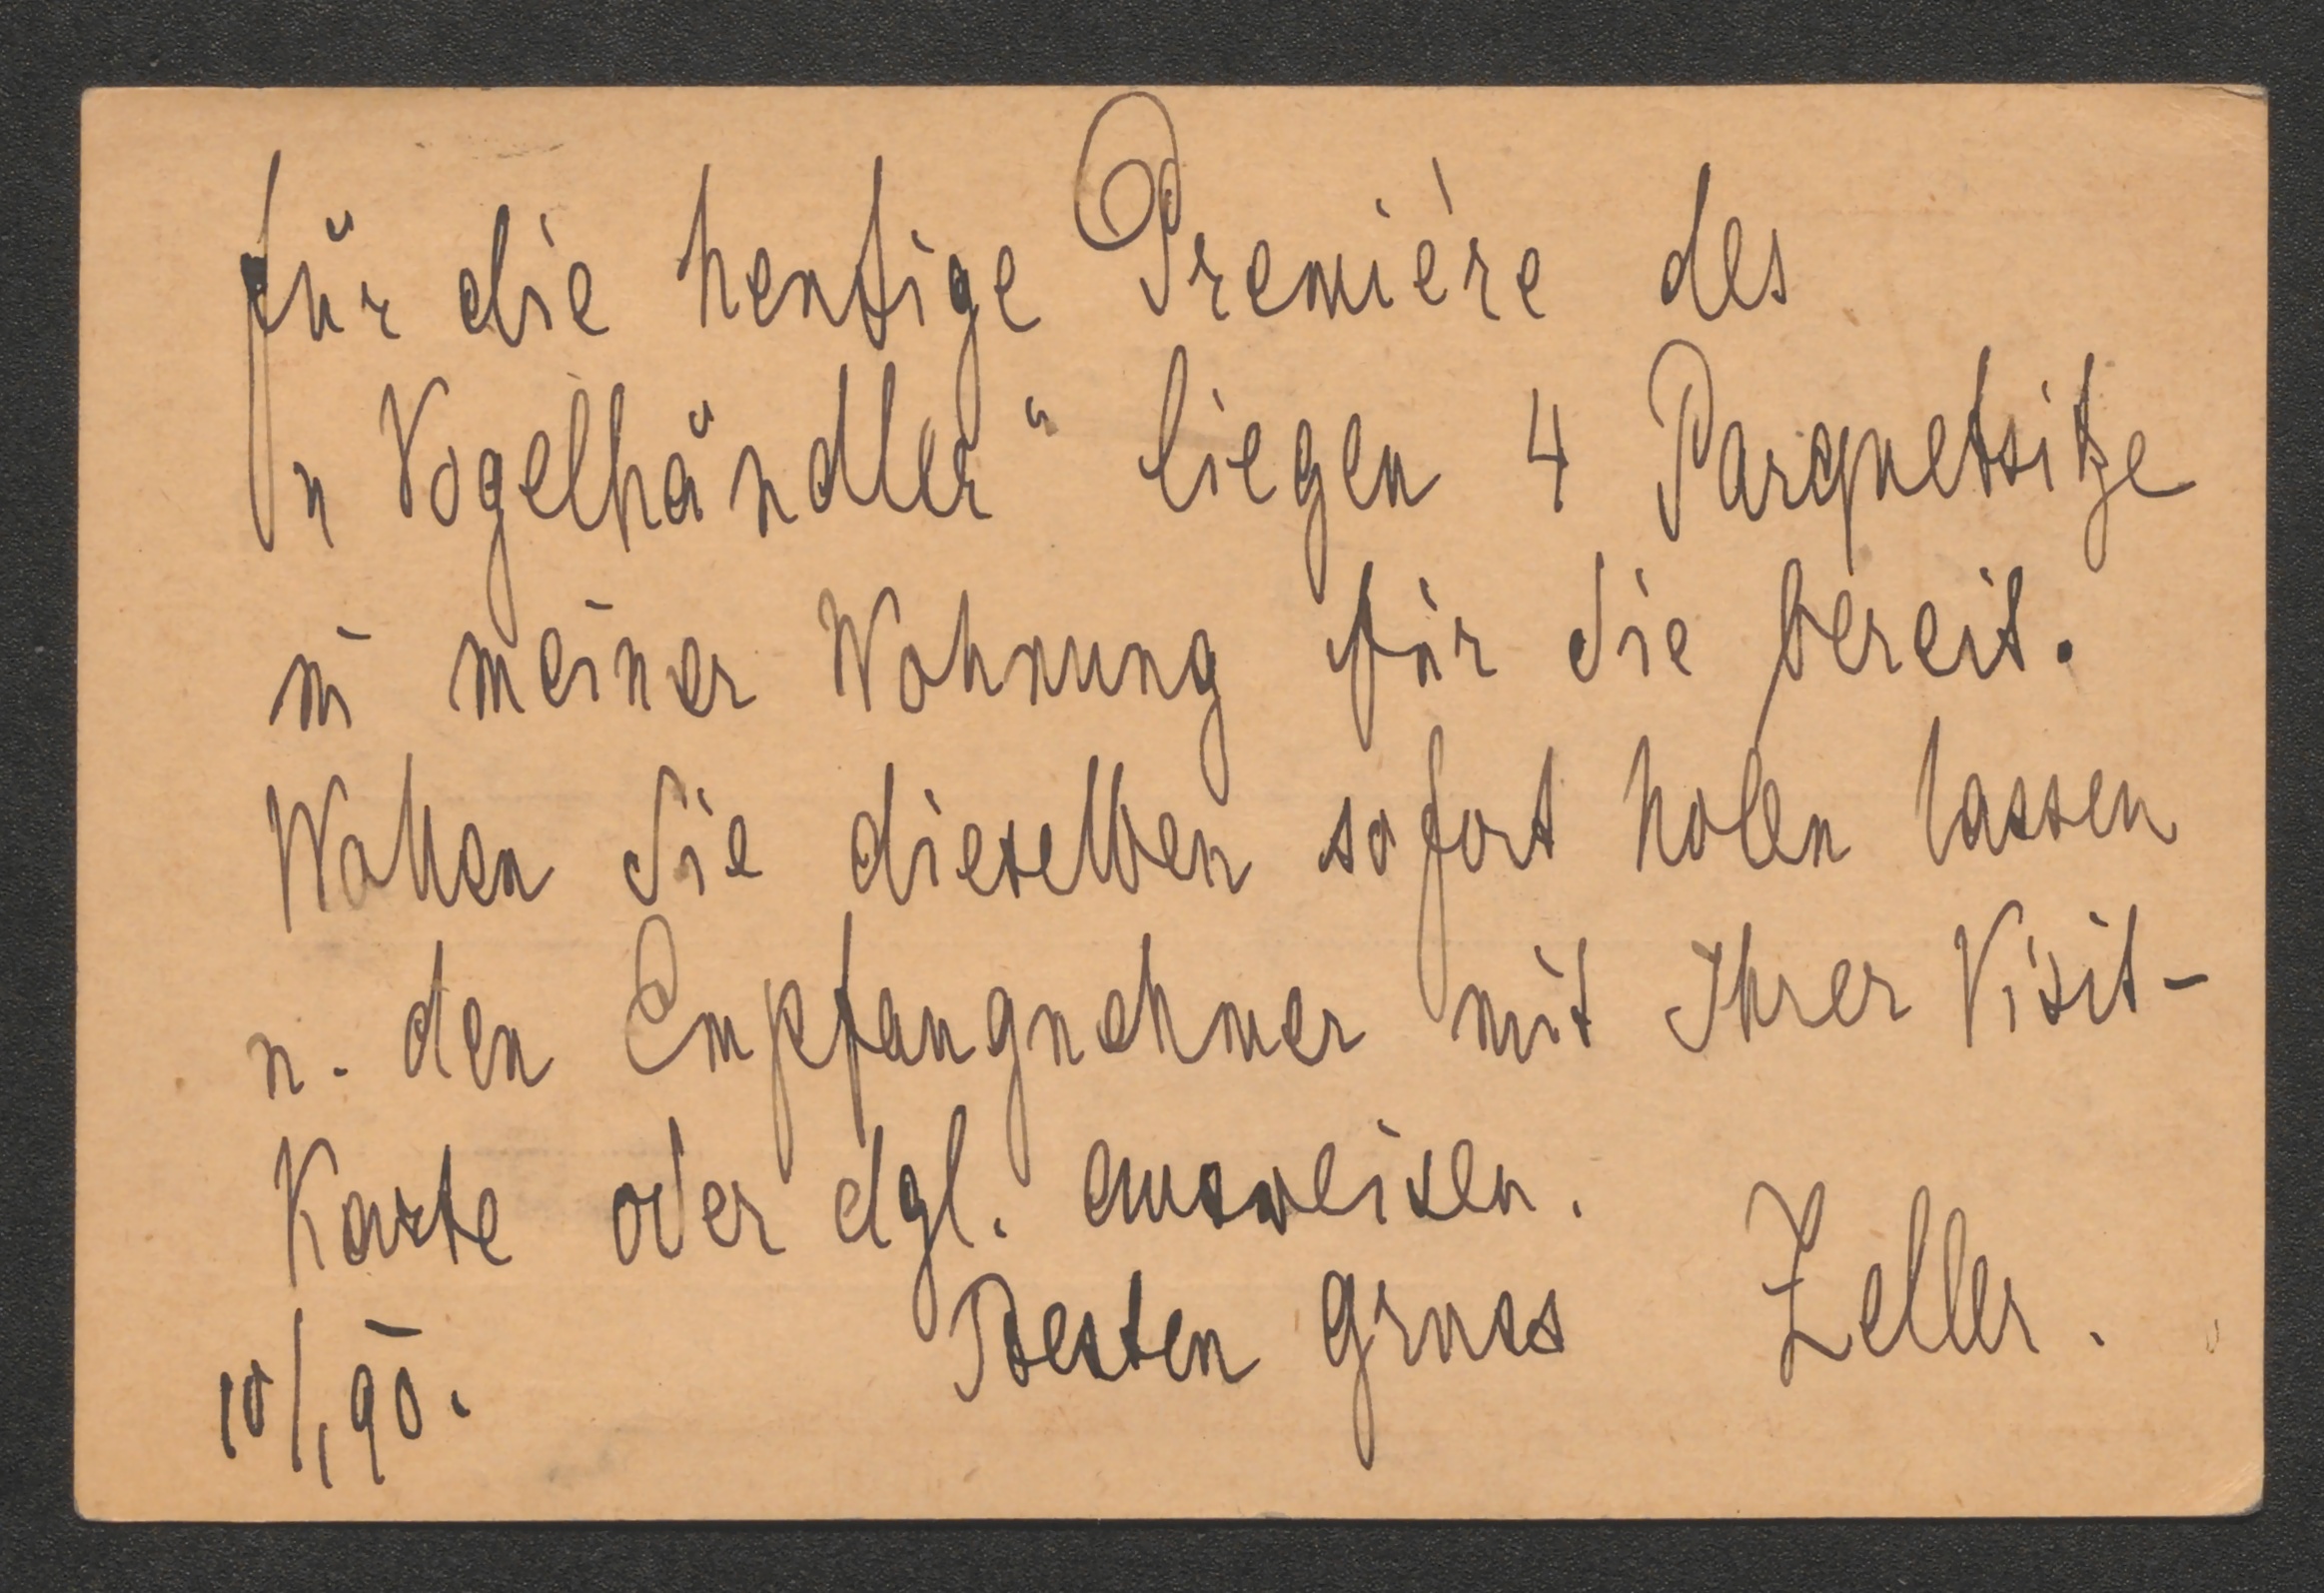 für die heutige Première des
„Vogelhändler“ liegen 4 Parquetsitze
in meiner Wohnung für Sie bereit.
Wollen Sie dieselben sofort holen lassen
u. den Empfangnehmer mit Ihrer Visit-
Karte oder dgl. ausweisen.
Besten Gruss Zeller.
10/1,90.